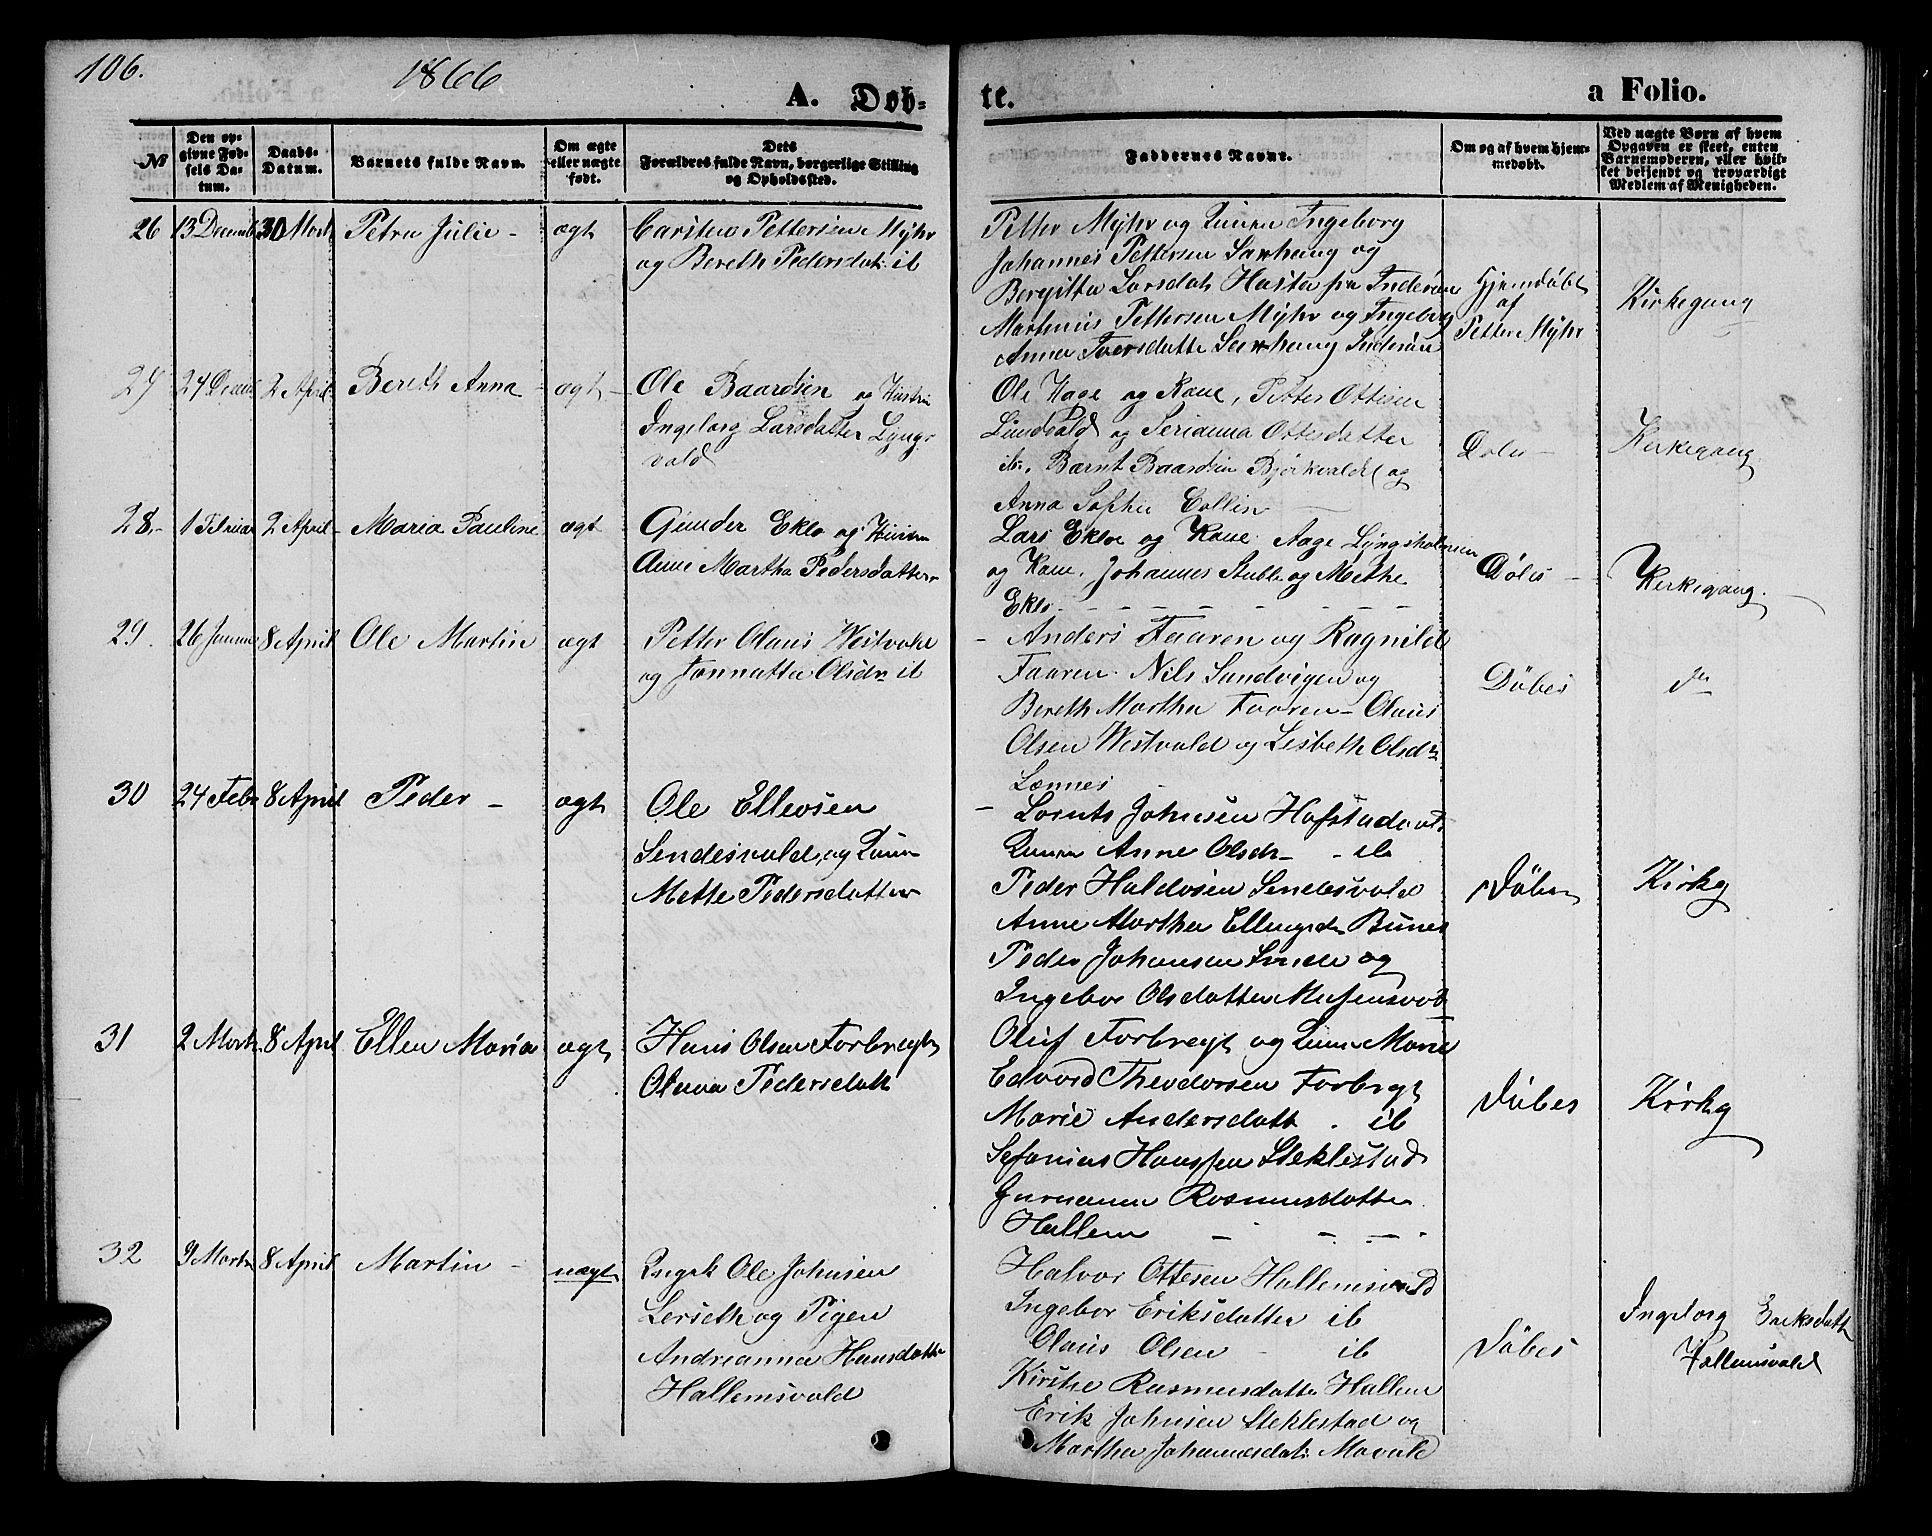 106.
1866
A. Døb-
te.
a Folio.
No
Den op-
givne Fød-
sels Da-
tum.
Daabs-
Datum.
Barnets fulde Navn.
Om ægte
eller uægte
født.
Dets
Forældres fulde Navn, borgerlige Stilling
og Opholdssted.
Faddernes Navne.
Om og af hvem hjem-
medøbt.
Ved uægte Børn af hvem
Opgaven er skeet, enten
Barnemoderen, eller hvil-
ket bekjendt og troværdigt
Medlem af Menigheden.
26 13 Decemb 30 Marts Petra Julie - ægt
Carsten Pettersen Myhr
og Bereth Pedersdat: ib
Petter Myhr og Ingeborg
Johannes Pettersen og
Bergitta Larsdat Hasta fra Inderøen
Marthinus Pettersen Myhr og Ingeborg
Anna Inderøen
Hjemdøbt
af
Petter Myhr
Kirkegang
27 24 Decemb 2 April Bereth Anna - ægt -
Ole Baardsen og Hustru
Ingeborg Larsdatter Lyngs
vald
Ole Hage og Kone, Petter Ottesen
Lundvald og Serianna Ottesdatter
ib. Bernt Baardsen Bjørkvaldet og
Anna Sophie Collin
Døbes -
Kirkegang
28. 1 Februar 2 April - Maria Pauline ægt -
Gunder Eklo og
Anne Martha Pedersdatter
Lars Ekloe og Kone. Aage Lyngsholmen
og Kone. Johannes Stubbe og Methe
Eklo - - - - - - -
Døbes -
Kirkegang.
29. 26 Januar 8 April Ole Martin ægt
Petter Olaus Westvald
og Jonnatta Olsdr ib
- Anders Faaren og Ragnild
Faaren. Nils Sundvigen og
Bereth Martha Faaren - Olaus
Olsen Westvald og Lisbeth Olsdr
Lænnes
Døbes
do
30 24 Febr 8 April Peder - ægt
Ole Ellevsen
Lendesvald og
Mette Pedersdatter
- Lornts Johnsen Hofstad
Anne Olsdr - ib
Peder Haldosen Lendesvald
Anne Martha Ellingsdr Bunes
Peder Johansen og
Ingebor Olsdatter
Døbes
Kirkg
31 2 Marts 8 April Ellen Maria ægt
Hans Olsen Forbregt
Oluva Pedersdatt
Oluf Forbregt og Marie
Edvard Theodorsen Forbregt
Marie Andersdatt . ib
Sefanias Hanssen Steklestad
Gurianna Rasmusdatter
Hallem - - - -
Døbes
Kirkg
32 9 Marts 8 April Martin - uægt
Ungk Ole Johnsen
Lerseth og Pigen
Andrianna Hansdatter
Hallemsvald
Halvor Ottesen Hallemsvald
Ingebor Eriksdatter ib
Olaus Olsen - ib
Kirsthe Rasmusdatter Hallem
Erik Johnsen Steklestad og
Martha Johannesdat: Mavald
Døbes
Ingeborg Eriksdatt
Hallemsvald